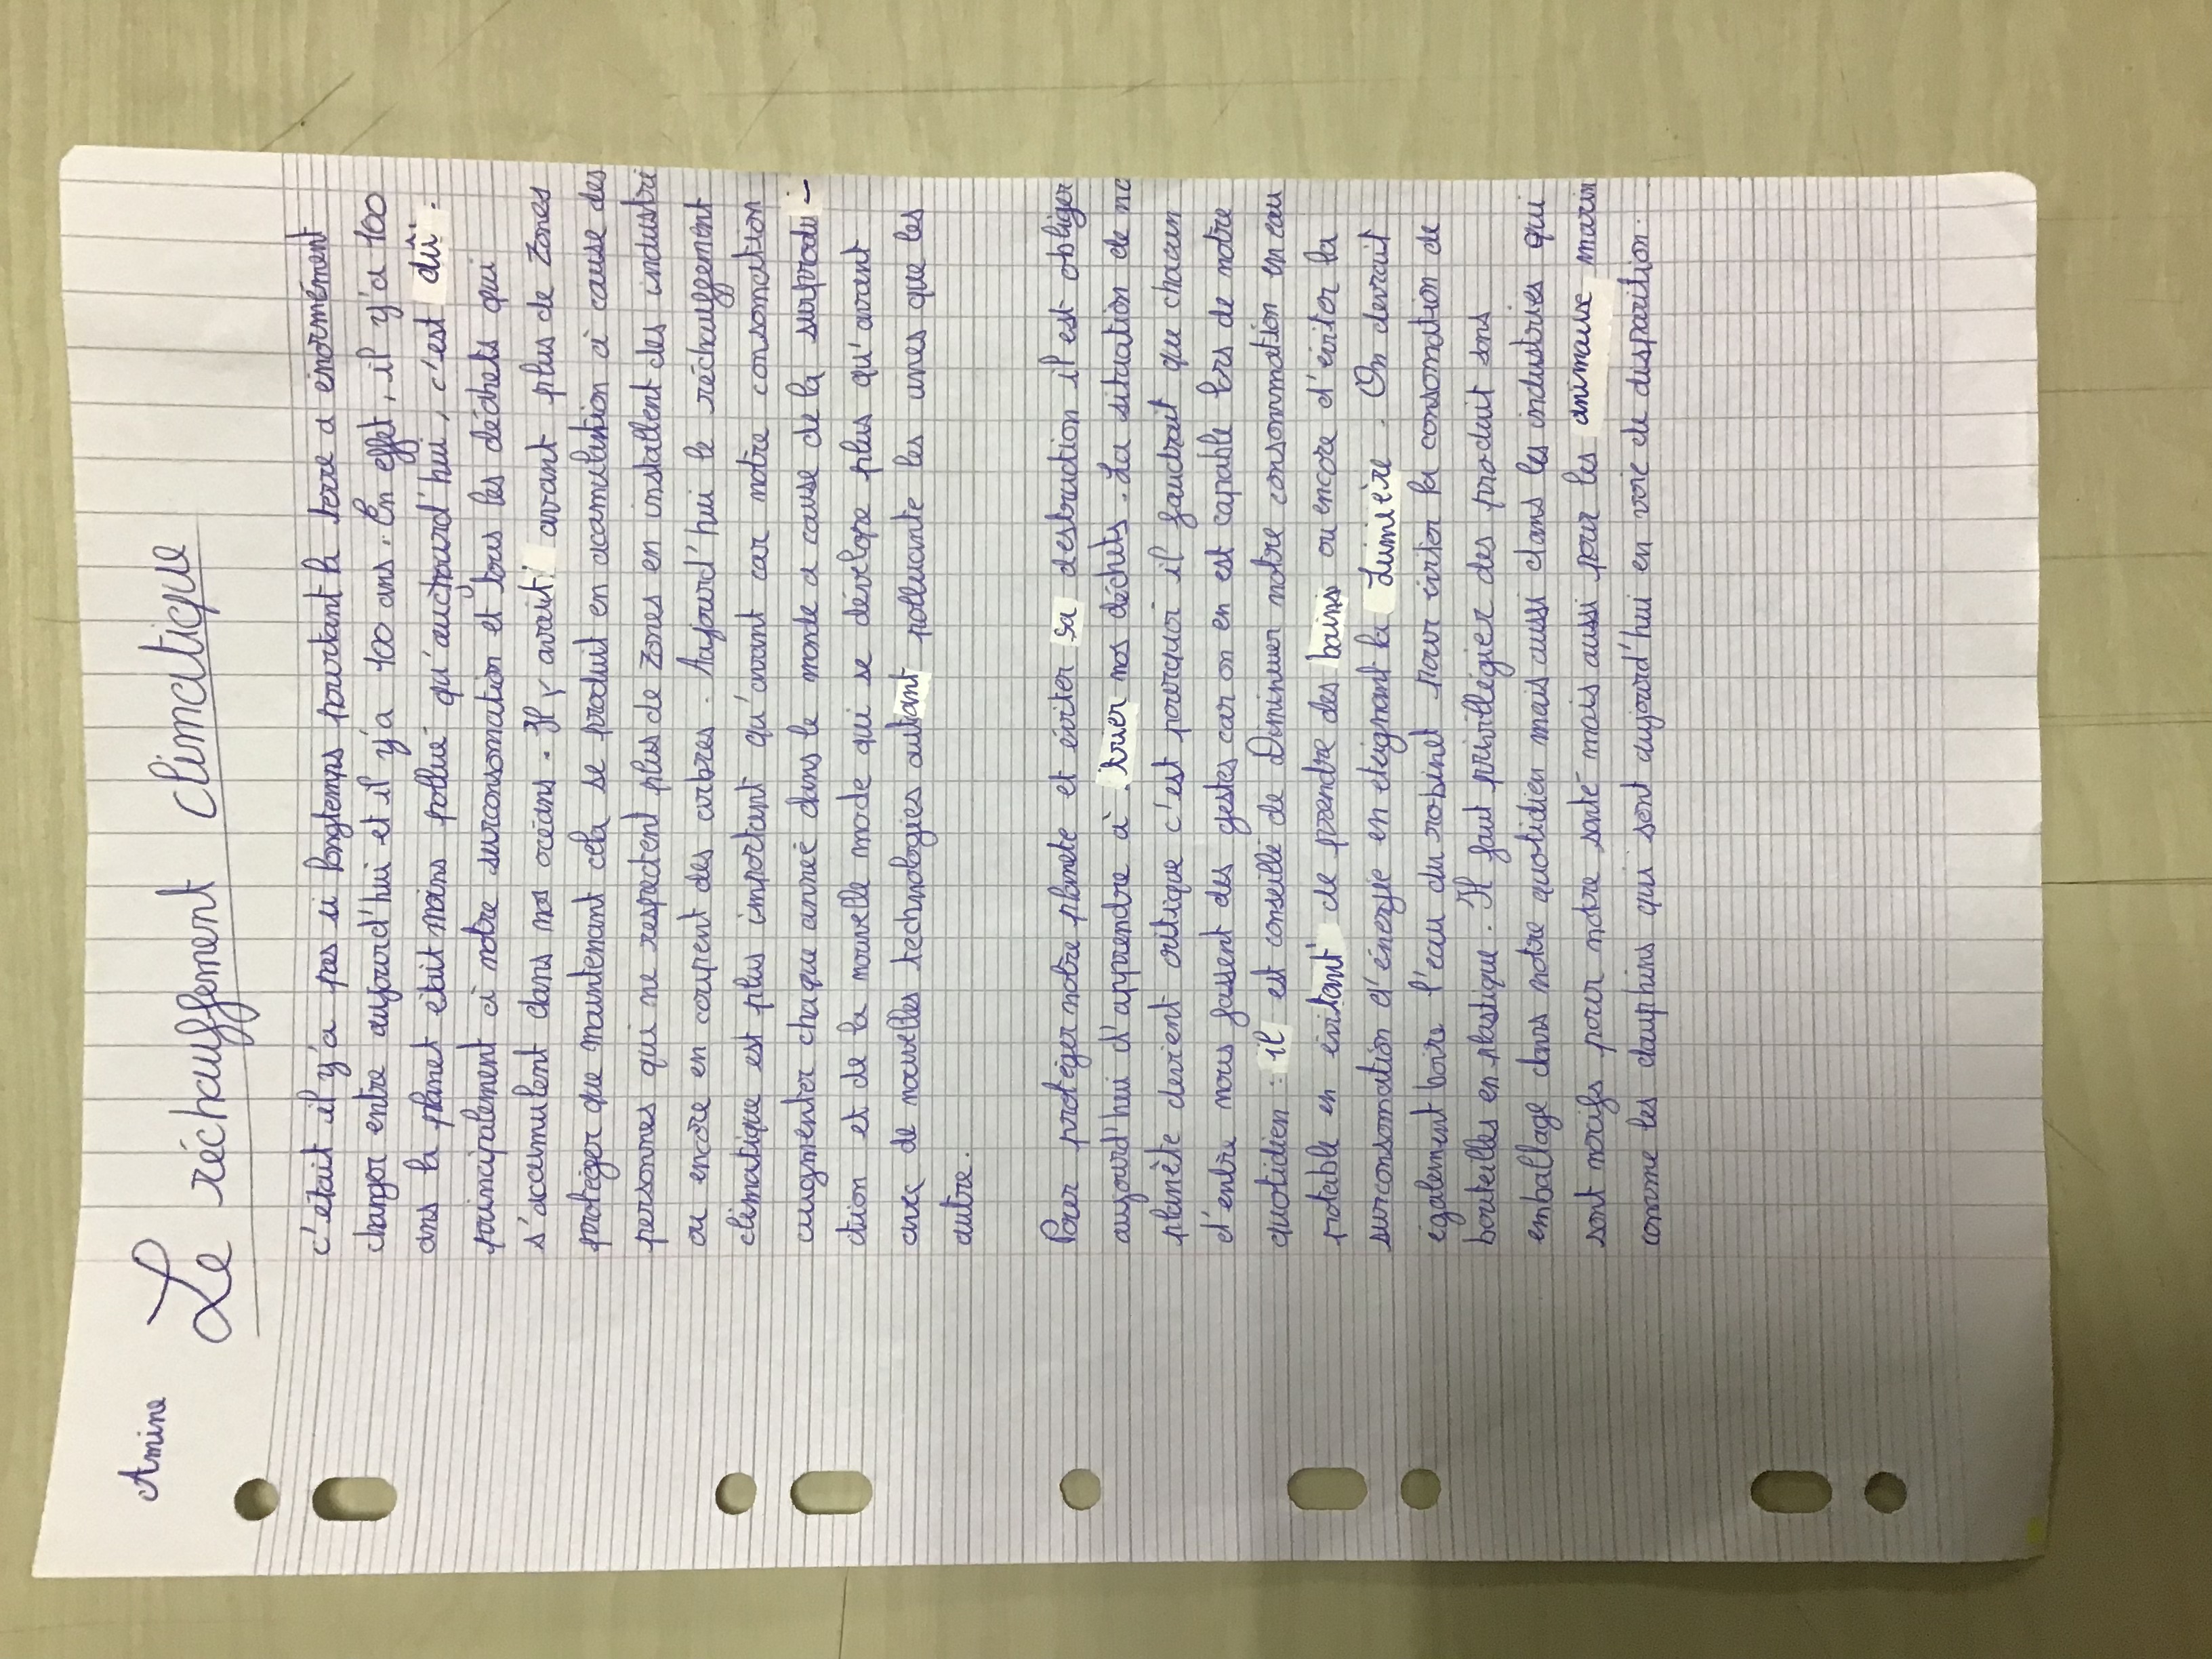 Amine
Le réchauffement climatique
c'était il y'a pas si longtemps pourtant la terre a énormément
changer entre aujourd'hui et il y'a 100 ans. En effet, il y'a 100
ans la planet était moins pollué qu'auchourd'hui, c'est dû
principalement à notre surconsomation et tous les déchets qui
s'accumulent dans nos océans. Il y avait avant plus de zones
protéger que maintenant cela se produit en accumulation à cause des
personnes qui ne respectent plus de zones en installent des industri
ou encore en coupent des arbres. Aujourd'hui le réchauffement
climatique est plus important qu'avant car notre consomation
augmenter chaque année dans le monde a cause de la surprodu-
ction et de la nouvelle mode qui se dévelope plus qu'avant
avec de nouvelles technologies autant polluante les unes que les
autre.
Pour protéger notre planete et éviter sa destruction il est obliger
aujourd'hui d'apprendre à trier nos déchets. La situation de no
planète devient critique c'est pourquoi il faudrait que chacun
d'entre nous fassent des gestes car on en est capable lors de notre
quotidien : il est conseillé de Diminuer notre consommation en eau
potable en évitant de prendre des bains ou encore d'éviter la
surconsomation d'énergie en eteignant la Lumière. On devrait
également boire l'eau du robinet pour éviter la consomation de
bouteilles en plastique. Il faut privillégier des produit sans
emballage dans notre quotidien mais aussi dans les industries qui
sont nocifs pour notre santé mais aussi pour les animaux marin
comme les dauphins qui sont aujourd'hui en voie de disparition.